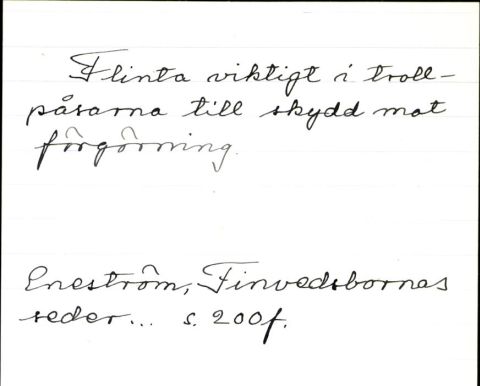 Flinta viktigt i troll-
påsarna till skydd mot
förgörning.
Eneström, Finvedsbornas
seder... s. 200f.